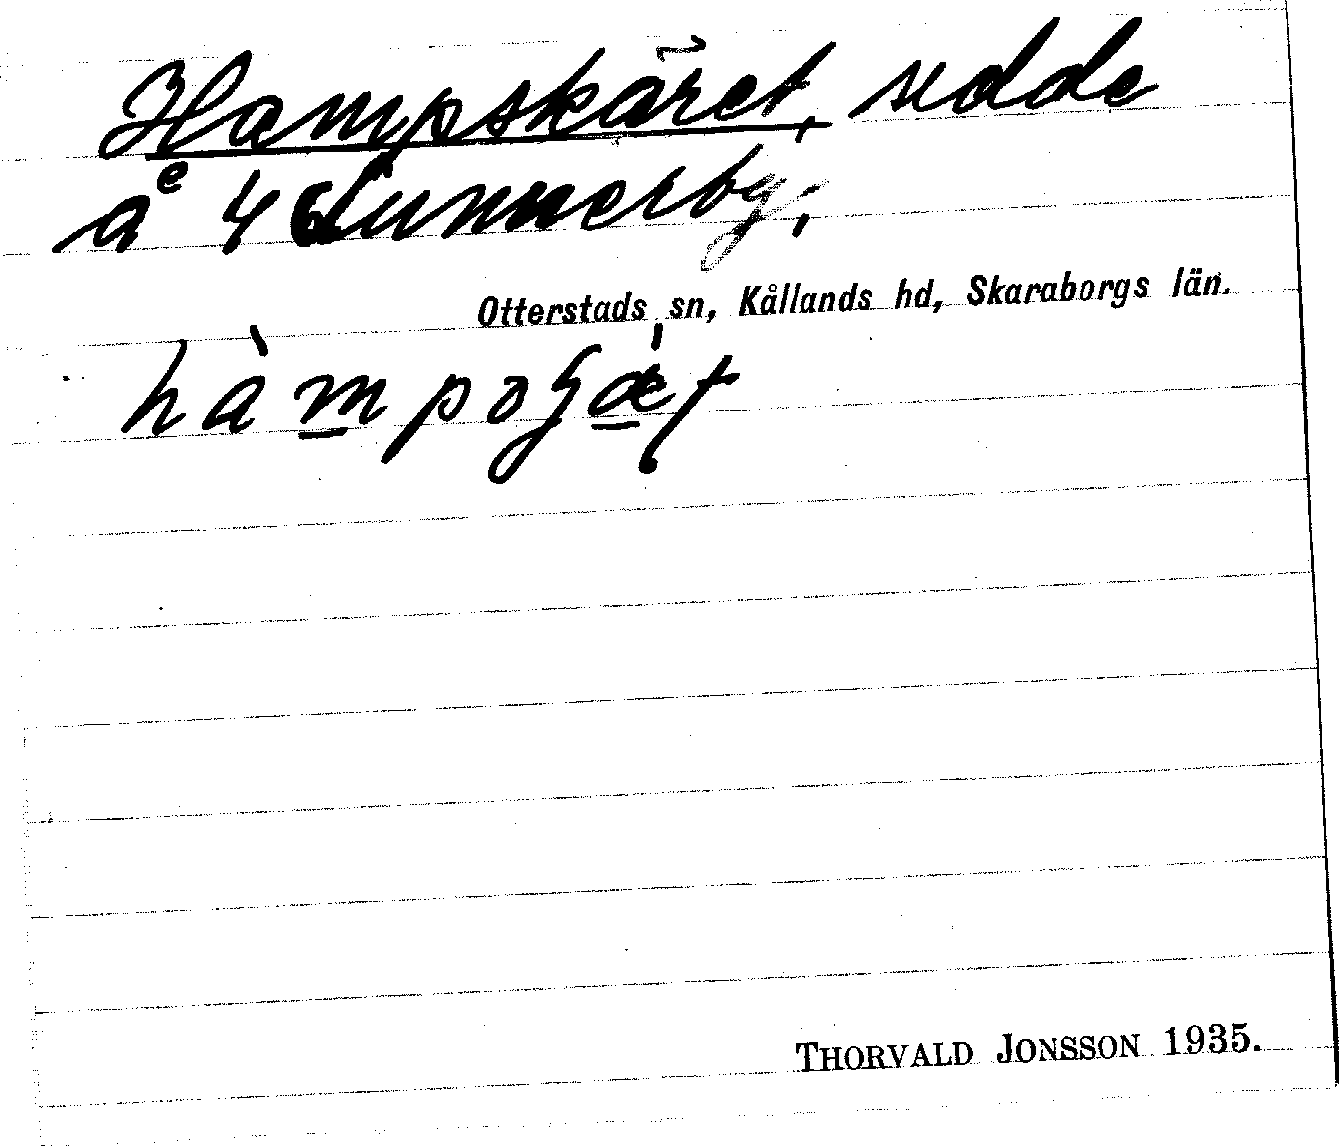 Hampskäret, udde
å 4 Sunnerby,
Otterstads sn, Kållands hd, Skaraborgs län.
THORVALD JONSSON 1935.